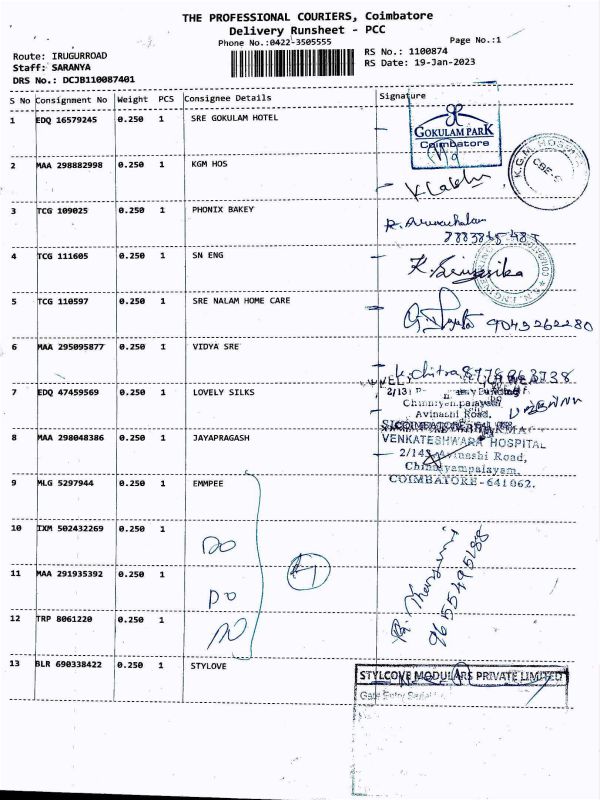 THE PROFESSIONAL COURIERS, Coimbatore
Delivery Runsheet - PCC
Phone No.:0422-3505555
Page No.:1
Route: IRUGURROAD
Staff: SARANYA
DRS No.: DCJB110087401
RS No.: 1100874
RS Date: 19-Jan-2023
S No Consignment No Weight PCS Consignee Details Signature
1 EDQ 16579245 0.250 1 SRE GOKULAM HOTEL
GOKULAM PARK
Coimbatore
2 MAA 298882998 0.250 1 KGM HOS
K.G.M. HOSPITAL
CBE-6
3 TCG 109025 0.250 1 PHONIX BAKEY
R. Arunachalam
4 TCG 111605 0.250 1 SN ENG
5 TCG 110597 0.250 1 SRE NALAM HOME CARE
9043262280
6 MAA 295095877 0.250 1 VIDYA SRE
K. chitra
7 EDQ 47459569 0.250 1 LOVELY SILKS
Chinniyampalayam
Avinashi Road,
8 MAA 298048386 0.250 1 JAYAPRAGASH
VENKATESHWARA HOSPITAL
Avinashi Road,
Chinniyampalayam,
COIMBATORE-641062.
9 MLG 5297944 0.250 1 EMMPEE
10 IXM 502432269 0.250 1
DO
11 MAA 291935392 0.250 1
DO
12 TRP 8061220 0.250 1
DO
9655495188
13 BLR 690338422 0.250 1 STYLOVE
STYLCOVE MODULARS PRIVATE LIMITED
Gate Entry Serial